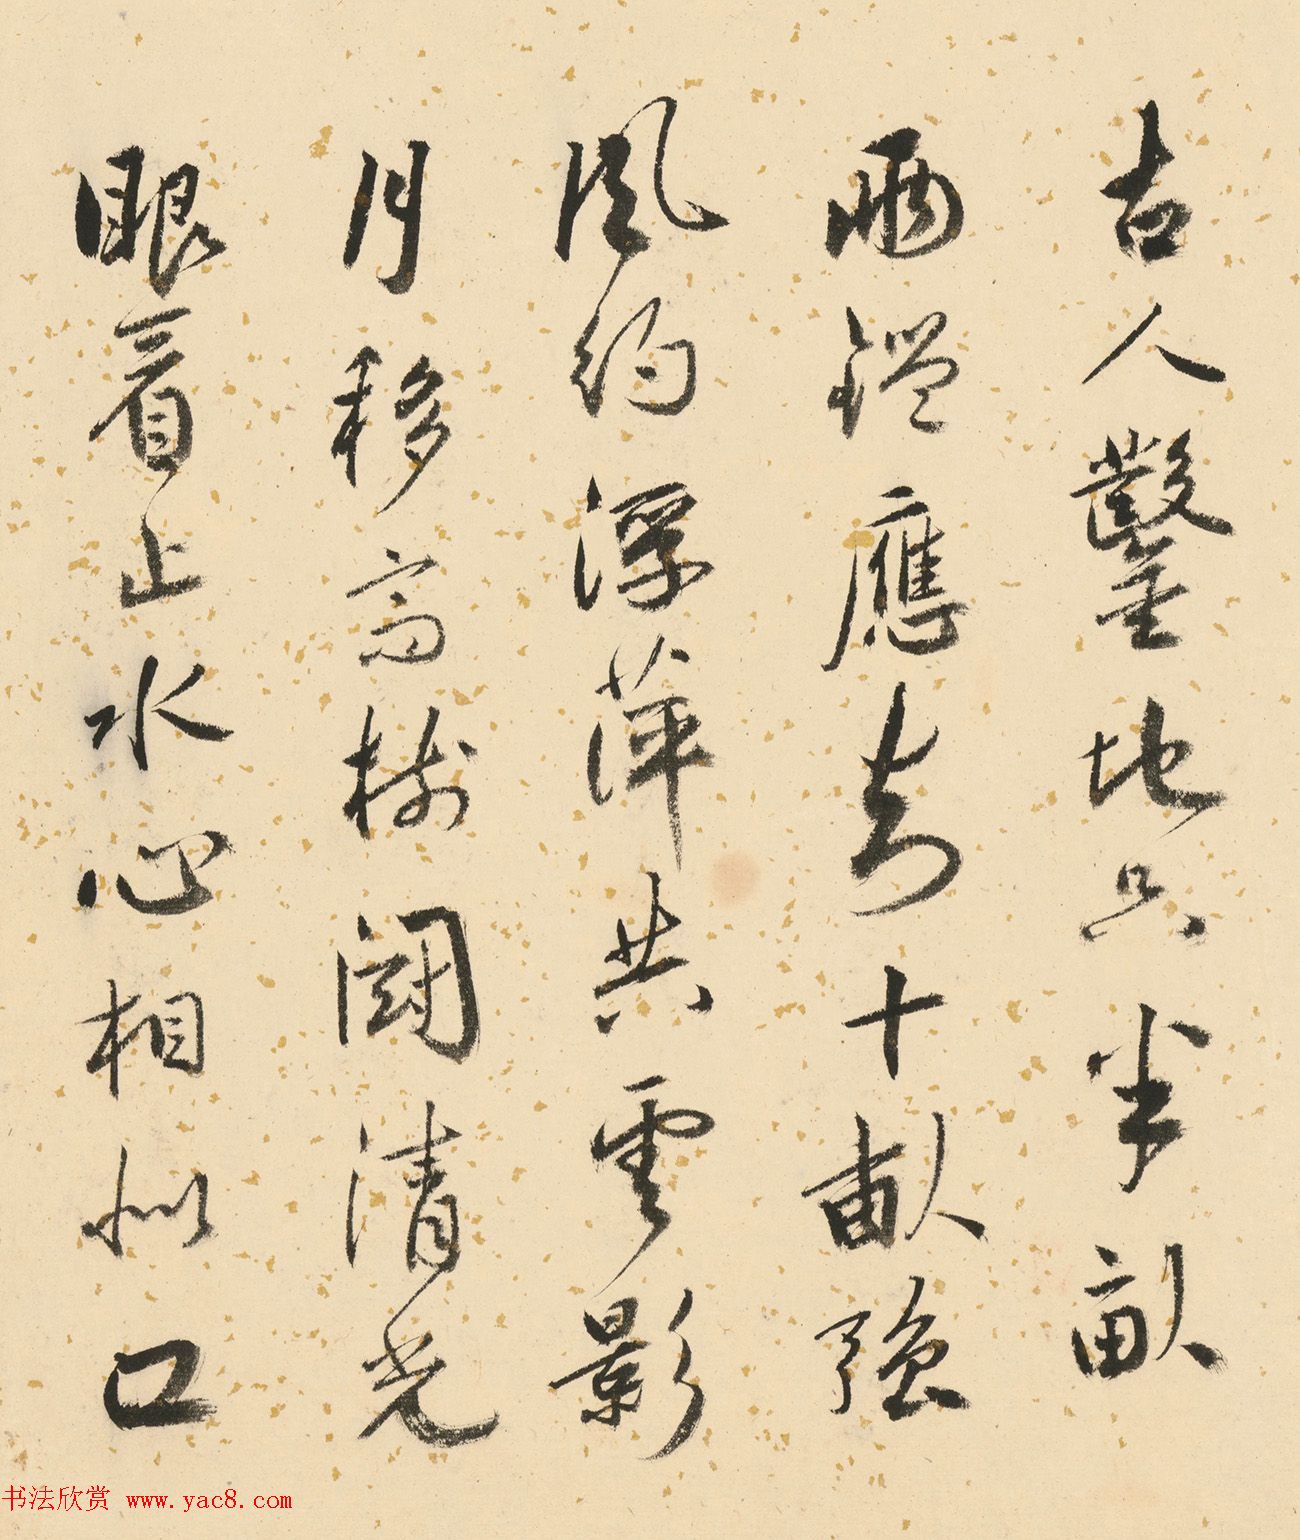 古人鑿地只半畝
兩鑑應知十畝強
風約浮萍共雲影
月移高樹闘清光
眼看止水心相似口
书法欣赏 www.yac8.com